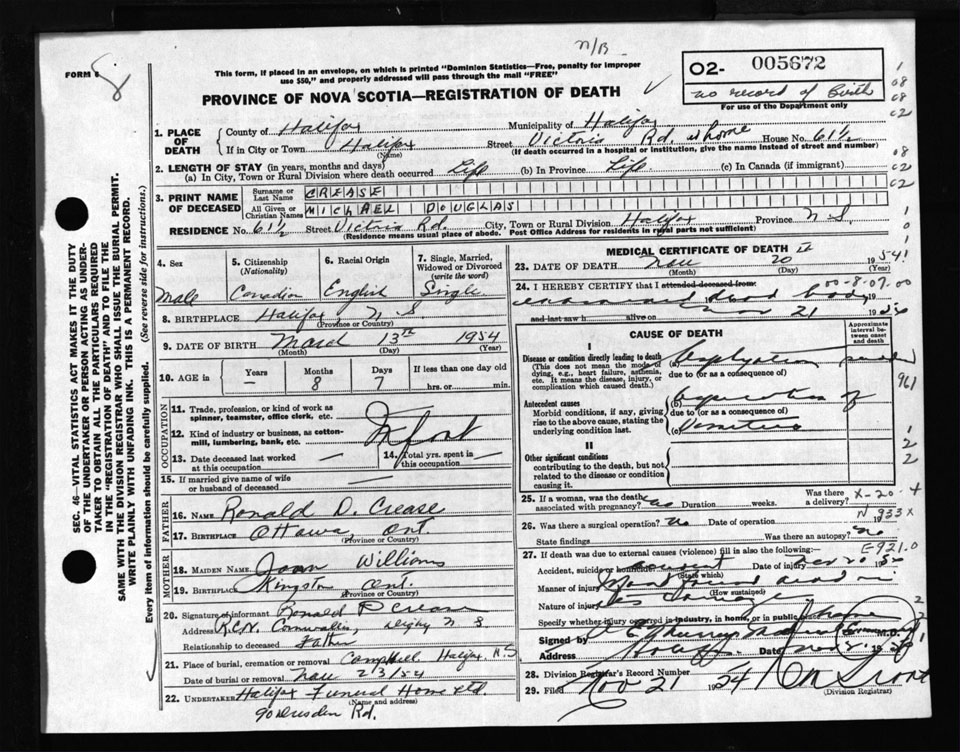 N/B
FORM 6
This form, if placed in an envelope, on which is printed "Dominion Statistics—Free, penalty for improper
use $50," and properly addressed will pass through the mail "FREE"
O2- 005672
no record of Birth
For use of the Department only
PROVINCE OF NOVA SCOTIA—REGISTRATION OF DEATH
1. PLACE OF DEATH
County of Halifax Municipality of Halifax
If in City or Town Halifax Street Victoria Rd. at home House No. 61½
(Name) (If death occurred in a hospital or institution, give the name instead of street and number)
2. LENGTH OF STAY (in years, months and days)
(a) In City, Town or Rural Division where death occurred Life (b) In Province Life (c) In Canada (if immigrant)
3. PRINT NAME OF DECEASED
Surname or Last Name CREASE
All Given or Christian Names MICHAEL DOUGLAS
RESIDENCE No. 61½ Street Victoria Rd. City, Town or Rural Division Halifax Province N.S.
(Residence means usual place of abode. Post Office Address for residents in rural parts not sufficient)
4. Sex
Male
5. Citizenship
(Nationality)
Canadian
6. Racial Origin
English
7. Single, Married,
Widowed or Divorced
(write the word)
Single
8. BIRTHPLACE Halifax N.S.
(Province or Country)
9. DATE OF BIRTH March 13th 1954
(Month) (Day) (Year)
10. AGE in
Years Months Days If less than one day old
— 8 7 hrs. or min.
OCCUPATION
11. Trade, profession, or kind of work as
spinner, teamster, office clerk, etc.
12. Kind of industry or business, as cotton-
mill, lumbering, bank, etc.
Infant
13. Date deceased last worked
at this occupation —
14. Total yrs. spent in
this occupation —
15. If married give name of wife
or husband of deceased —
FATHER
16. NAME Ronald D. Crease
17. BIRTHPLACE Ottawa, Ont.
(Province or Country)
MOTHER
18. MAIDEN NAME Joan Williams
19. BIRTHPLACE Kingston Ont.
(Province or Country)
20. Signature of informant Ronald D Crease
Address R.C.N. Cornwallis, Digby N S.
Relationship to deceased Father
21. Place of burial, cremation or removal Camphill Halifax, N.S
Date of burial or removal Nov 23/54
22. UNDERTAKER Halifax Funeral Home Ltd
90 Dresden Rd.
MEDICAL CERTIFICATE OF DEATH
23. DATE OF DEATH Nov 20 1954
(Month) (Day) (Year)
24. I HEREBY CERTIFY that I attended deceased from:
dead body 19
and last saw h alive on Nov 21 19
CAUSE OF DEATH
Approximate
interval be-
tween onset
and death
I
Disease or condition directly leading to death
(This does not mean the mode of
dying, e.g., heart failure, asthenia,
etc. It means the disease, injury, or
complication which caused death.)
(a) Asphyxiation
due to (or as a consequence of)
Antecedent causes
Morbid conditions, if any, giving
rise to the above cause, stating the
underlying condition last.
(b) of
due to (or as a consequence of)
(c)
II
Other significant conditions
contributing to the death, but not
related to the disease or condition
causing it.
25. If a woman, was the death
associated with pregnancy? Duration weeks. Was there
a delivery?
26. Was there surgical operation? No Date of operation 19
State findings Was there an autopsy? No
27. If death was due to external causes (violence) fill in also the following:—
E-921.0
Accident, suicide or homicide? accident Date of injury Nov 20 19
(State which)
Manner of injury
(How sustained)
Nature of injury
Specify whether injury occurred in industry, in home, or in public place home
Signed by M.D.
Address Date
28. Division Registrar's Record No.
29. Filed Nov 21 1954
(Division Registrar)
SEC. 46—VITAL STATISTICS ACT MAKES IT THE DUTY
OF THE UNDERTAKER OR PERSON ACTING AS UNDER-
TAKER TO OBTAIN ALL THE PARTICULARS REQUIRED
IN THE "REGISTRATION OF DEATH" AND TO FILE THE
SAME WITH THE DIVISION REGISTRAR WHO SHALL ISSUE THE BURIAL PERMIT.
WRITE PLAINLY WITH UNFADING INK. THIS IS A PERMANENT RECORD.
Every item of information should be carefully supplied. (See reverse side for instructions.)